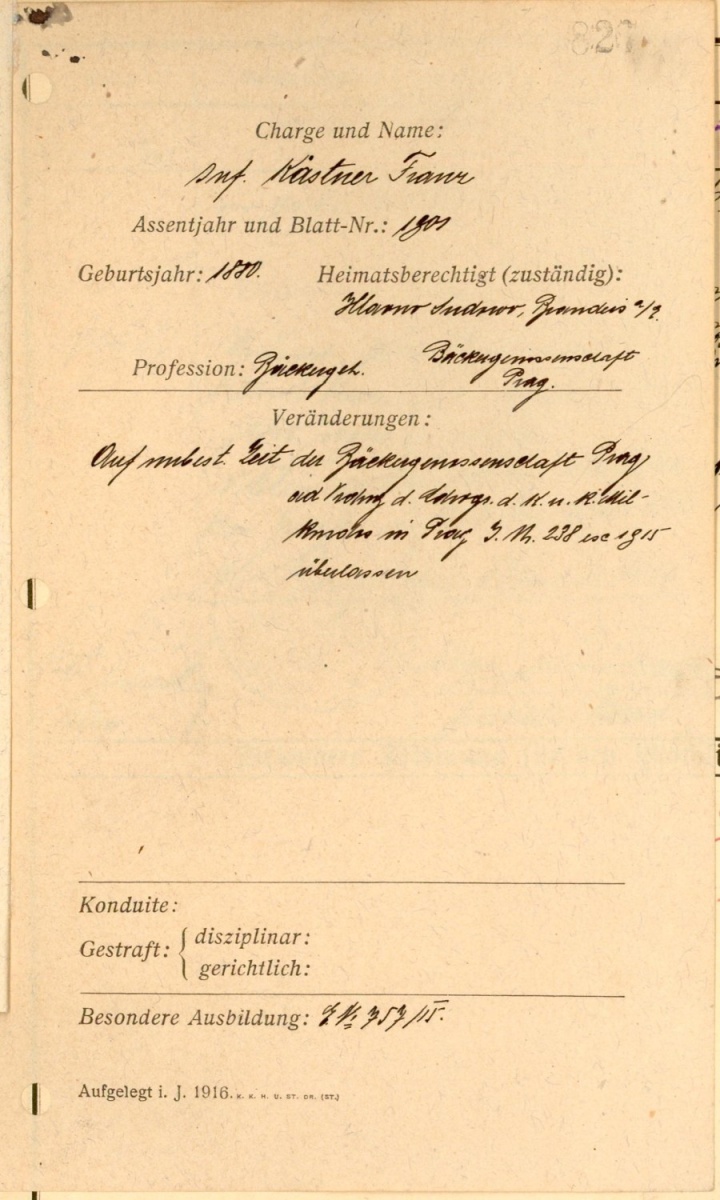 Charge und Name:
Inf. Kästner Franz
Assentjahr und Blatt-Nr.: 1901
Geburtsjahr: 1880. Heimatsberechtigt (zuständig):
Brandeis a/
Profession: Bäckergeh. Bäckergenossenschaft
Prag.
Veränderungen:
Auf unbest. Zeit der Bäckergenossenschaft Prag
d. d. k. u. k. Mil-
kmdos in Prag J. N. 238 ex 1915
überlassen
Konduite:
Gestraft: { disziplinar:
gerichtlich:
Besondere Ausbildung: 757/15.
Aufgelegt i. J. 1916. K. K. H. U. ST. DR. (ST.)